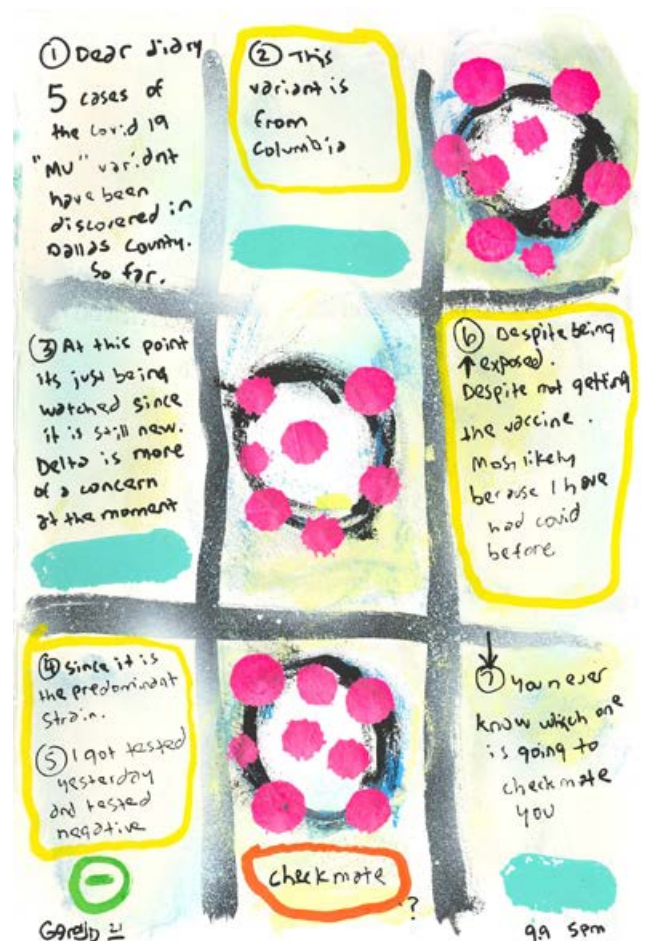 ① Dear diary
5 cases of
the Covid 19
"MU" variant
have been
discovered in
Dallas County.
So far.
② This
variant is
from
Columbia
③ At this point
its just being
watched since
it is still new.
Delta is more
of a concern
at the moment
④ Since it is
the predominant
strain.
⑤ I got tested
yesterday
and tested
negative
⑥ Despite being
↑ exposed.
Despite not getting
the vaccine.
Most likely
because I have
had covid
before
↓
⑦ You never
know which one
is going to
checkmate
you
checkmate
?
21
9.9 5pm